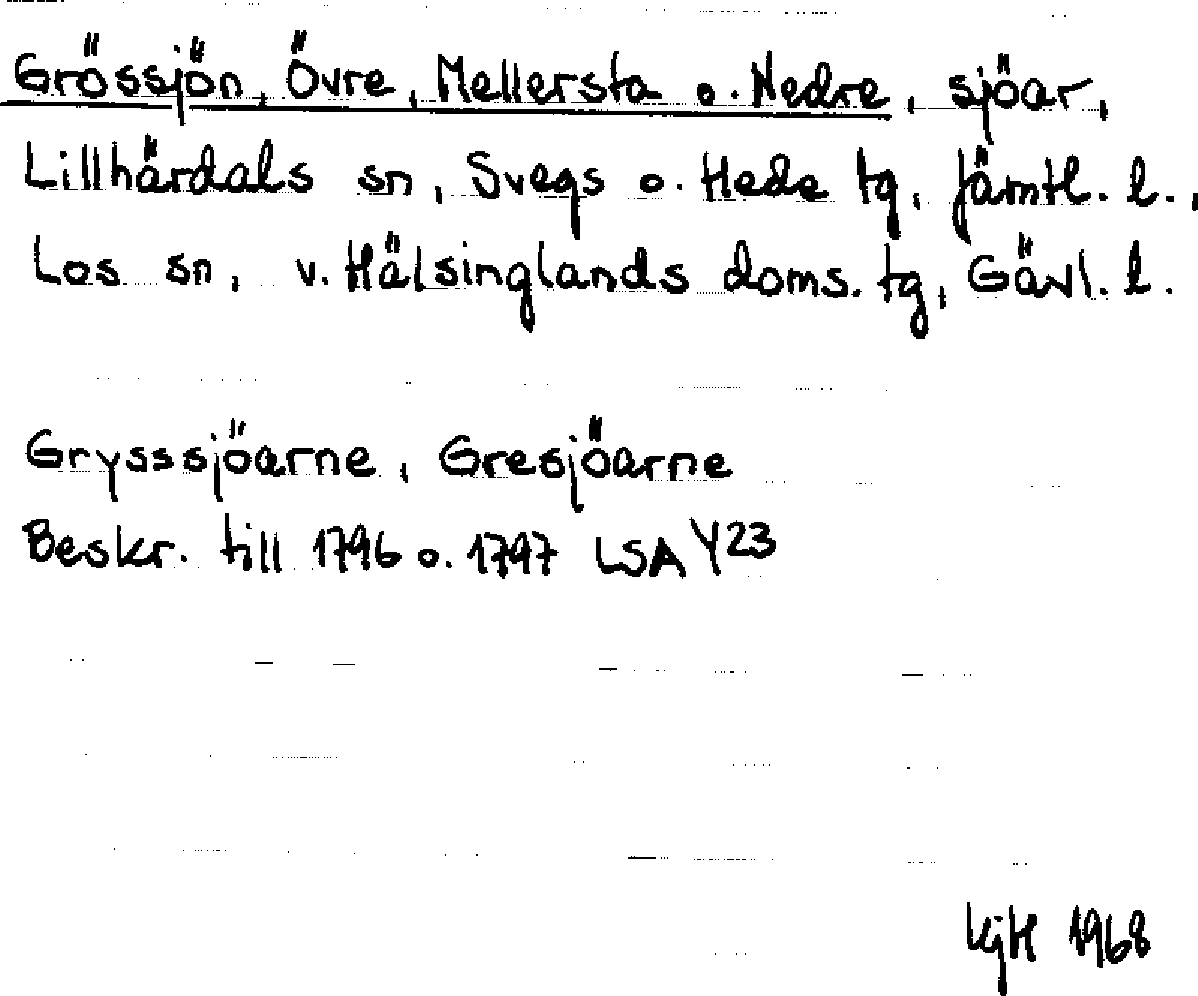 Grössjön, Övre, Mellersta o. Nedre, sjöar,
Lillhärdals sn, Svegs o. Hede tg, Jämtl. l.,
Los sn, v. Hälsinglands doms. tg, Gävl. l.
Grysssjöarne, Gresjöarne
Beskr. till 1796 o. 1797 LSA Y23
KjH 1968